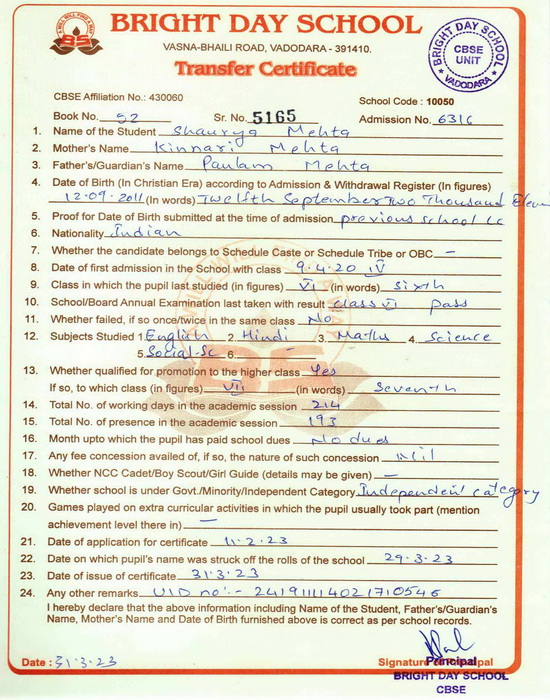 BRIGHT DAY SCHOOL
VASNA-BHAILI ROAD, VADODARA - 391410.
Transfer Certificate
BRIGHT DAY SCHOOL
CBSE
UNIT
VADODARA
CBSE Affiliation No.: 430060
School Code : 10050
Book No. 52 Sr. No. 5165 Admission No. 6316
1. Name of the Student Shaurya Mehta
2. Mother's Name Kinnari Mehta
3. Father's/Guardian's Name Paulam Mehta
4. Date of Birth (In Christian Era) according to Admission & Withdrawal Register (In figures)
12-09-2011 (In words) Twelfth September Two Thousand Eleven
5. Proof for Date of Birth submitted at the time of admission previous school LC
6. Nationality Indian
7. Whether the candidate belongs to Schedule Caste or Schedule Tribe or OBC –
8. Date of first admission in the School with class 9.4.20 IV
9. Class in which the pupil last studied (in figures) VI (in words) Sixth
10. School/Board Annual Examination last taken with result class VI pass
11. Whether failed, if so once/twice in the same class No
12. Subjects Studied 1. English 2. Hindi 3. Maths 4. Science
5. Social.Sc 6. –
13. Whether qualified for promotion to the higher class Yes
If so, to which class (in figures) VII (in words) Seventh
14. Total No. of working days in the academic session 214
15. Total No. of presence in the academic session 193
16. Month upto which the pupil has paid school dues No dues
17. Any fee concession availed of, if so, the nature of such concession Nil
18. Whether NCC Cadet/Boy Scout/Girl Guide (details may be given) –
19. Whether school is under Govt./Minority/Independent Category Independent category
20. Games played on extra curricular activities in which the pupil usually took part (mention
achievement level there in) –
21. Date of application for certificate 11.2.23
22. Date on which pupil's name was struck off the rolls of the school 29.3.23
23. Date of issue of certificate 31.3.23
24. Any other remarks UID no:- 241911114021710546
I hereby declare that the above information including Name of the Student, Father's/Guardian's
Name, Mother's Name and Date of Birth furnished above is correct as per school records.
Date : 31.3.23
Signature Principal
Principal
BRIGHT DAY SCHOOL
CBSE